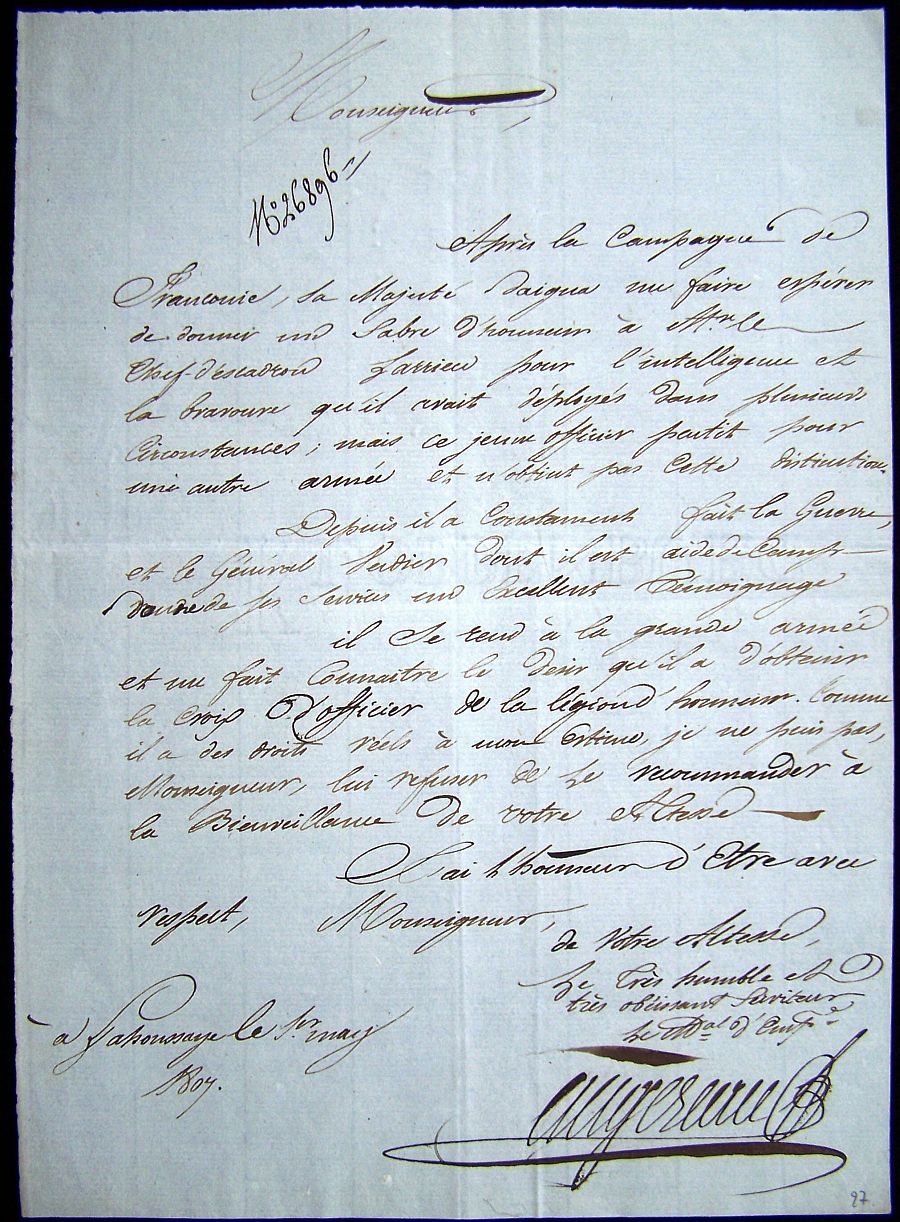 Monseigneur,
N.° 26896 //
Après la Campagne de
Franconie, Sa Majesté daigna me faire espérer
de donner un Sabre d'honneur à Mr. le
Chef-d'escadron Larrieu pour l'intelligence et
la bravoure qu'il avait déployés dans plusieurs
Circonstances; mais ce jeune officier partit pour
une autre armée et n'obtint pas cette distinction.
Depuis il a Constament fait la Guerre,
et le Général Verdier dont il est aide de Camp
de ses Services un Excellent Témoignage
il Se rend à la grande armée
et me fait Connaitre le desir qu'il a d'obtenir
la Croix d'officier de la légion d'honneur. Comme
il a des droits réels à mon Estime, je ne puis pas,
Monseigneur, lui refuser de Le recommander à
la Bienveillance de votre Altesse
J'ai l'honneur d'Etre avec
respect, Monseigneur,
de Votre Altesse,
Le Très humble et
très obéissant Serviteur
Le Mal d'Empe
à Lahoussaye le 1er may
1807.
augereau
97